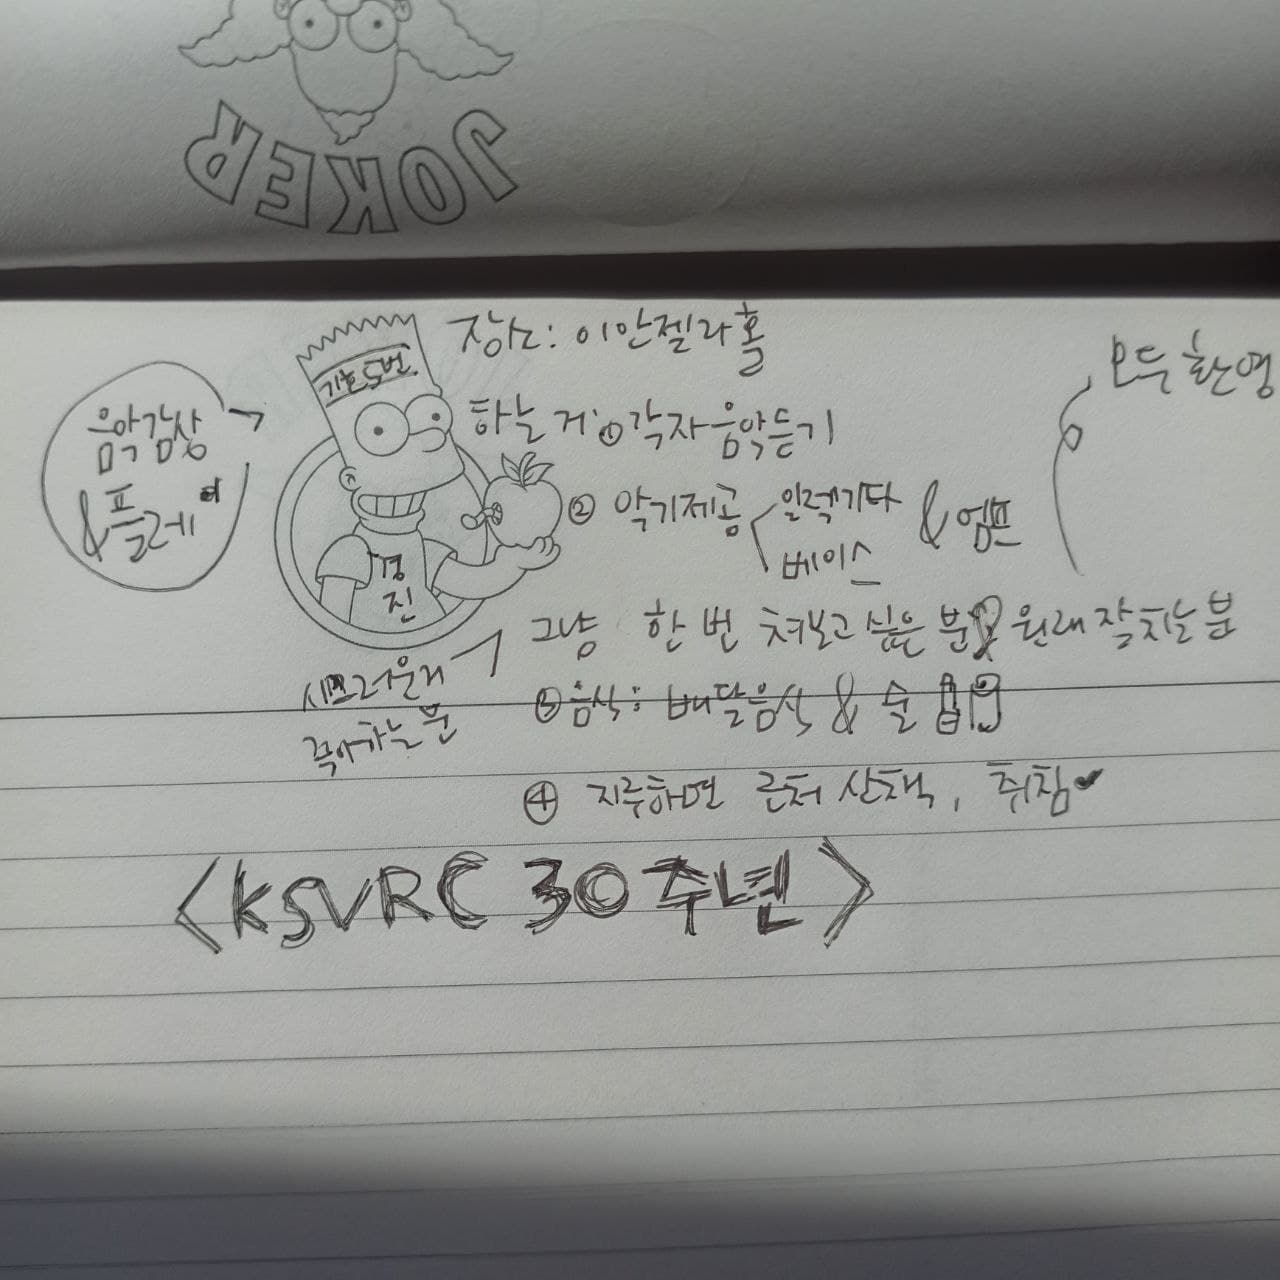 JOKER
장소: 이안젤라홀
모두 환영
기호5번
음악감상
&플레이
하는 거: ① 각자음악듣기
② 악기제공 일렉기타 & 엠프
베이스
경진
그냥 한 번 쳐보고 싶은 분 원래 잘치는 분
시끄러운거
좋아하는 분
③ 음식: 배달음식 & 술
④ 지루하면 근처 산책, 취침
<KSVRC 30주년>